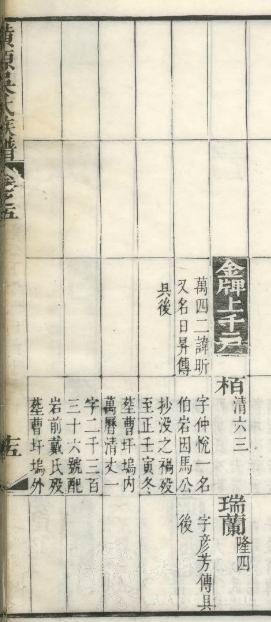 金牌上千户
萬四二諱昕
又名日昇傳
具後
栢
清六三
字仲悅一名
伯岩因馬公
抄沒之禍歿
至正壬寅冬
塟曹圩塢內
萬曆清丈一
字二千三百
三十六號配
岩前戴氏歿
塟曹圩塢外
瑞蘭
隆四
字彥芳傳具
後
源吳氏族譜
卷之五
十五